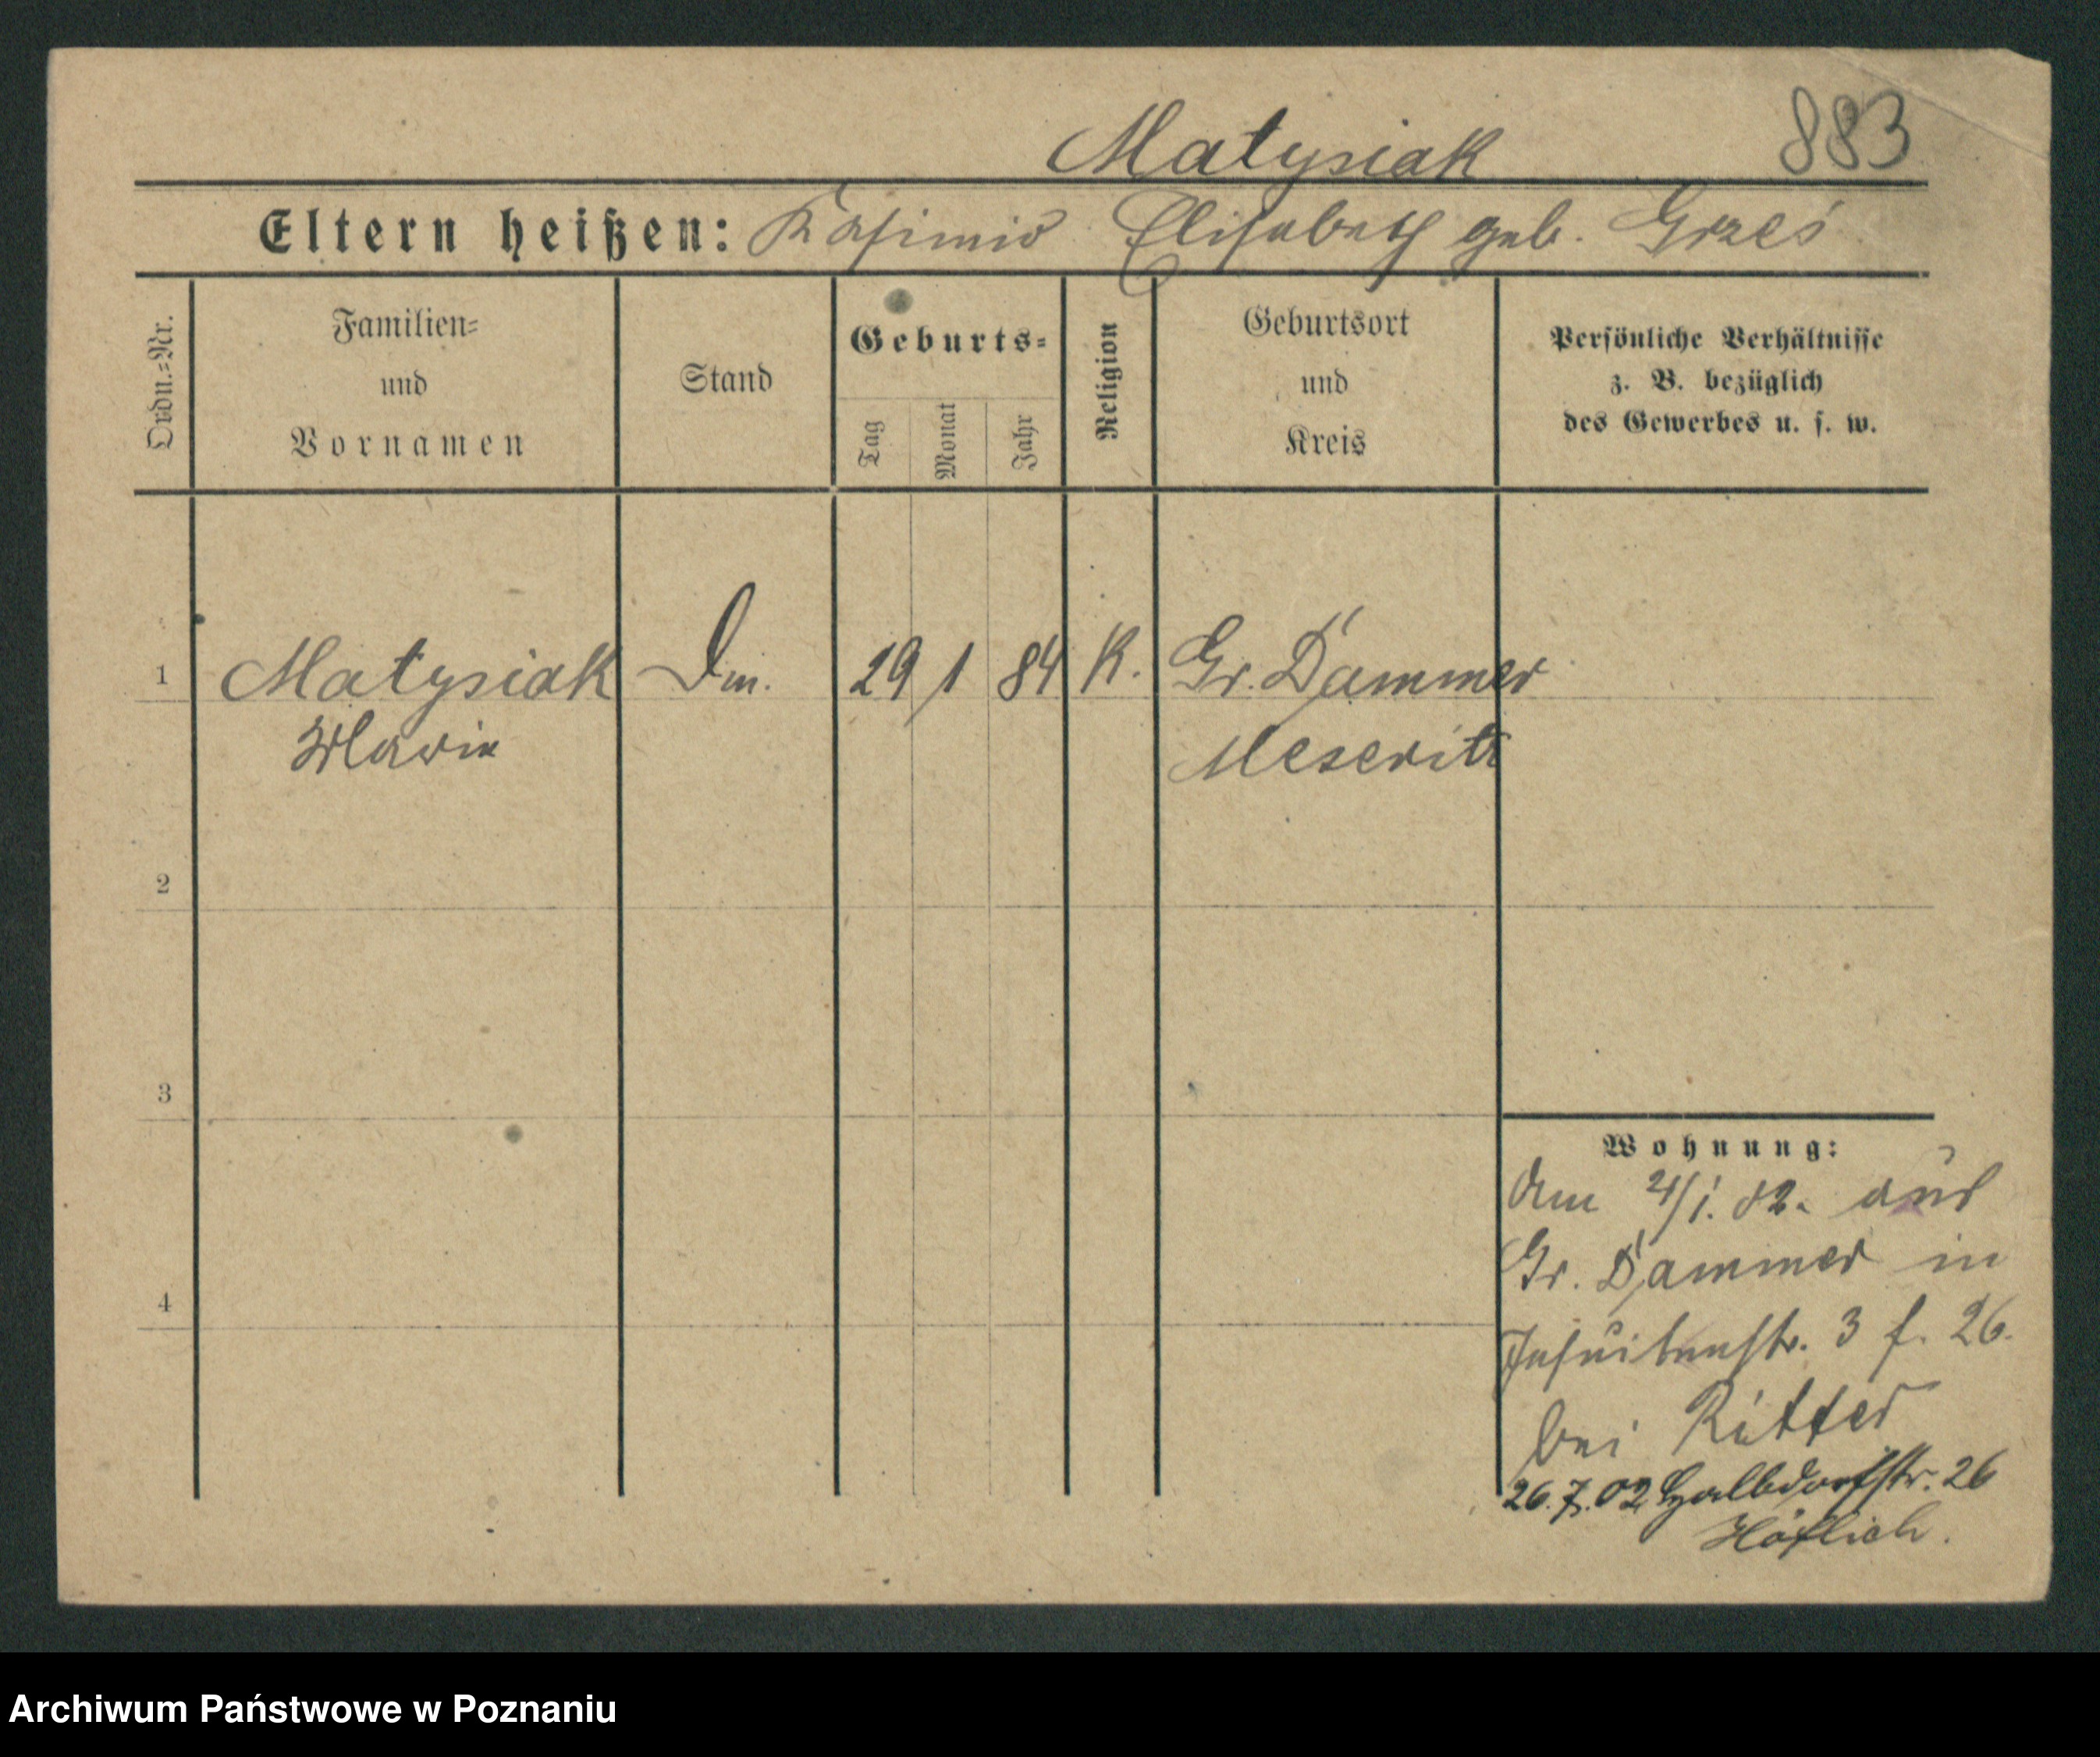 Matysiak 883
Eltern heißen: Kasimir Elisabeth geb. Grześ
Ordn.-Nr.
Familien-
und
Vornamen
Stand
Geburts-
Tag
Monat
Jahr
Religion
Geburtsort
und
Kreis
Persönliche Verhältnisse
z. B. bezüglich
des Gewerbes u. s. w.
1 Matysiak Dm. 29 1 84 K. Gr. Dammer
Marie Meseritz
2
3
4
Wohnung:
Am 2/1. 02. aus
Gr. Dammer in
Jesuitenstr. 3 f. 26.
bei Ritter
26.7.02 Halbdorfstr. 26
Höflich.
Archiwum Państwowe w Poznaniu